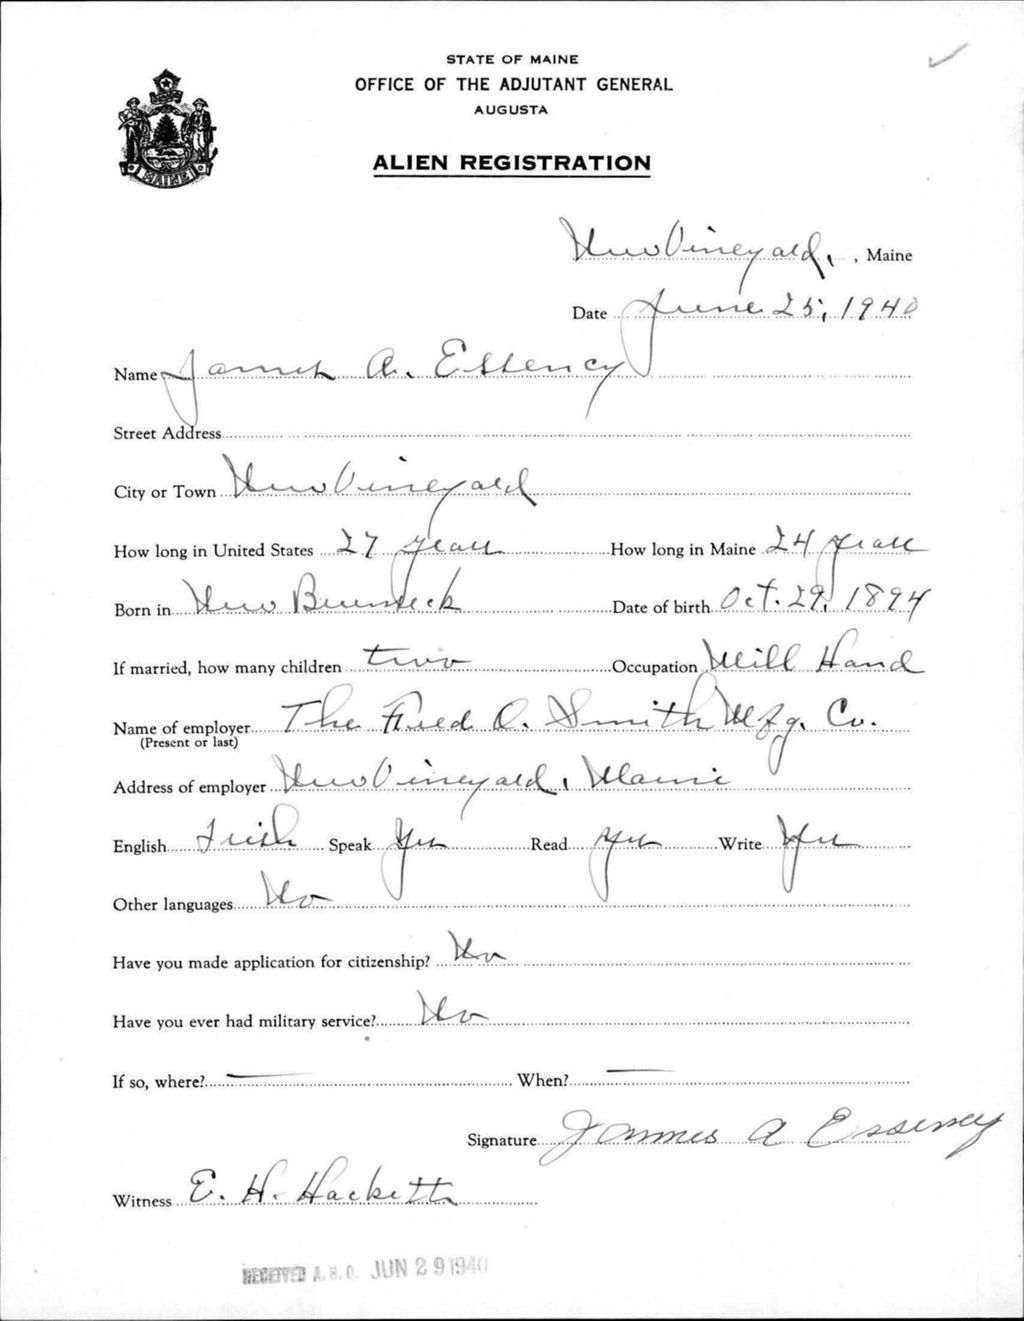 STATE OF MAINE
OFFICE OF THE ADJUTANT GENERAL
AUGUSTA
ALIEN REGISTRATION
MAINE
New Vineyard, , Maine
Date June 25, 1940
Name James A. Essency
Street Address
City or Town New Vineyard
How long in United States 27 years How long in Maine 24 years
Born in New Brunswick Date of birth Oct. 29, 1894
If married, how many children two Occupation Mill Hand
Name of employer The Fred O. Smith Mfg. Co.
(Present or last)
Address of employer New Vineyard, Maine
English Irish Speak Yes Read Yes Write Yes
Other languages No
Have you made application for citizenship? No
Have you ever had military service? No
If so, where? — When? —
Signature James A Essency
Witness E. H. Hackett
RECEIVED A.G.O. JUN 29 1940